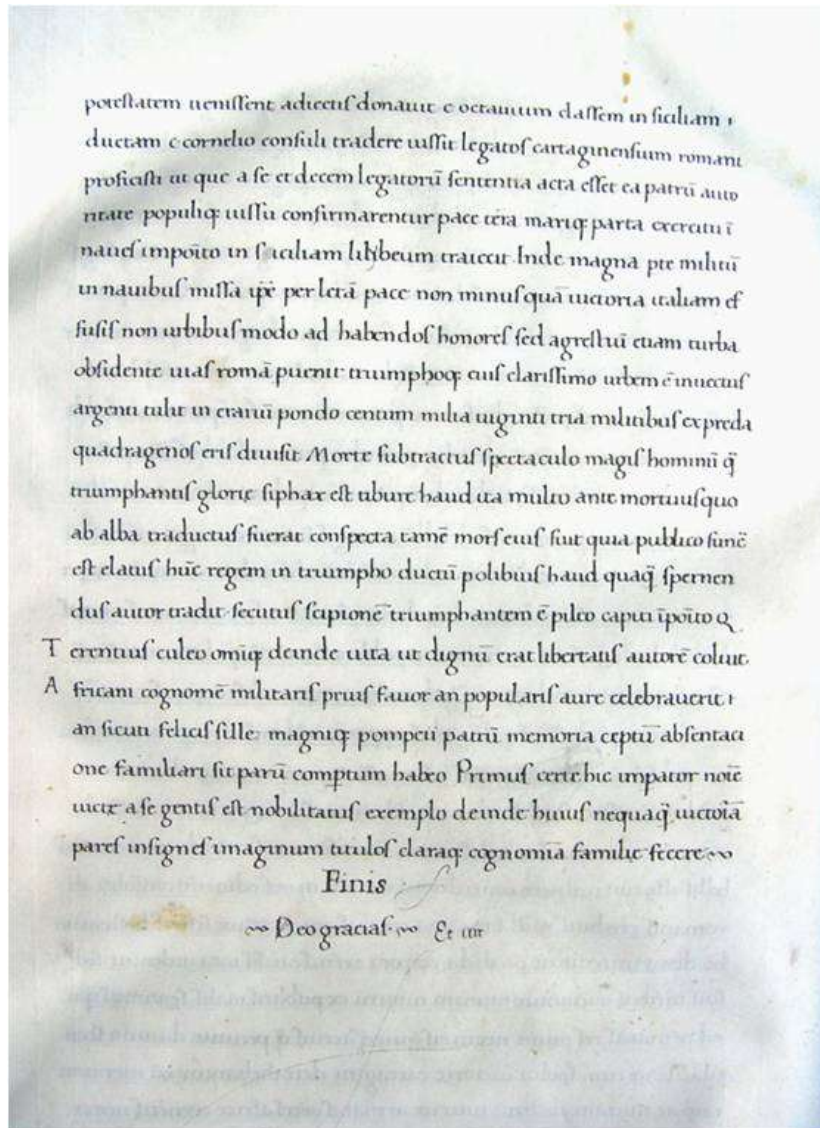 potestatem uenissent adiectis donauit c octauium classem in siciliam
ductam c cornelio consuli tradere iussit legatos cartaginensium romam
proficisci ut que a se et decem legatorū sententia acta essent ea patrū aucto
ritate populiq iussu confirmarentur pace terra mariq parta exercitu ī
naues impoīto in siciliam lilybeum traiecit Inde magna pte militū
in nauibus missa ipē per letā pace non minus quā uictoria italiam ef
fusis non urbibus modo ad habendos honores sed agrestiū etiam turba
obsidente uias romā puenit triumphoq eius clarissimo urbem ē inuectus
argenti tulit in erariū pondo centum milia uiginti tria militibus ex preda
quadragenos eris diuisit Morte subtractus spectaculo magis hominū q̄
triumphantis glorię siphax est tibure haud ita multo ante mortuus quo
ab alba traductus fuerat conspecta tamē mors eius fuit quia publico funē
est elatus hūc regem in triumpho ductū polibius haud quaq̄ spernen
dus autor tradit secutus scipionē triumphantem ē pileo capiti īpoīto Q
T erentius culeo omīq deinde uita ut dignū erat libertatis autorē coluit
A fricani cognomē militaris prius fauor an popularis aure celebrauerit
an sicuti felicis sille magniq pompeii patrū memoria ceptū absentaci
one familiari sit parū comptum habeo Primus certe hic impator noīē
uicte a se gentis est nobilitatus exemplo deinde huius nequaq̄ uictoīā
pares insignes imaginum titulos claraq cognomīa familię fecere
Finis
Deo gracias